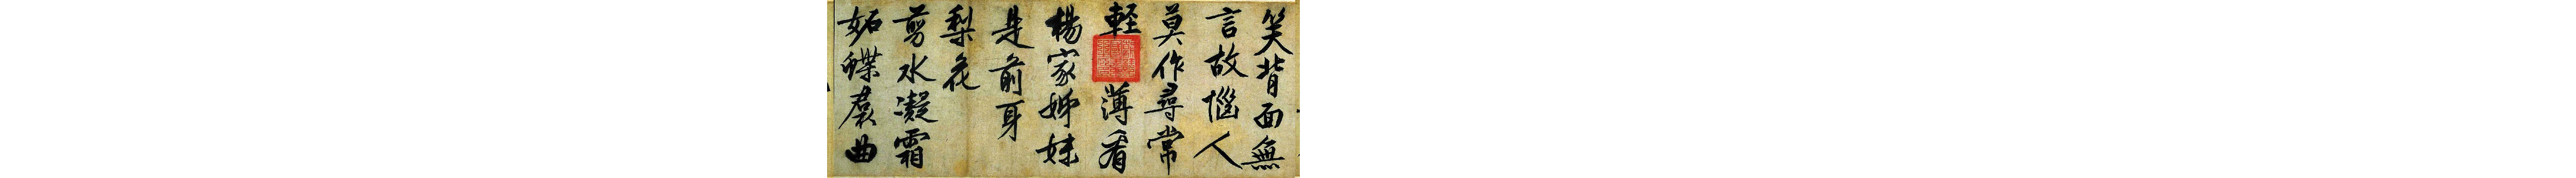 笑背面無
言故惱人
莫作尋常
輕薄看
楊家姊妹
是前身
梨花
剪水凝霜
妬蝶羣曲